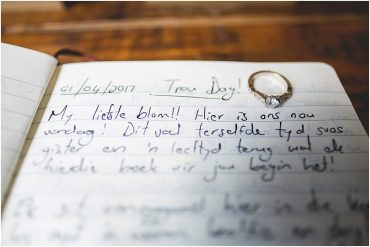 01/04/2017 Trou Dag!
My liefste blom!! Hier is ons nou
vandag! Dit voel terselfde tyd soos
gister en 'n leeftyd terug wat ek
hierdie boek vir jou begin het!
hier in die